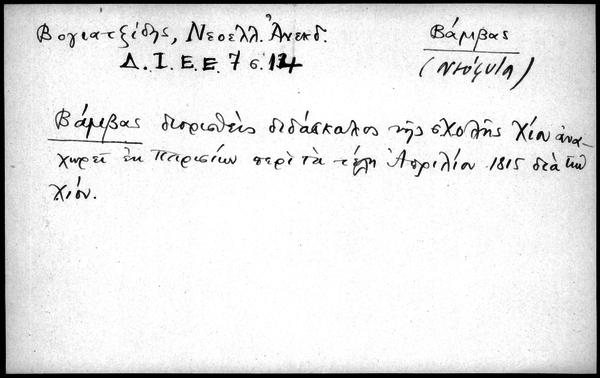 Βογιατζίδης, Νεοελλ. Ἀνεκδ. Βάμβας
Δ. Ι. Ε. Ε. 7 σ. 114 (Νεόφυτ)
Βάμβας διορισθεὶς διδάσκαλος τῆς σχολῆς Χίου ἀνα-
χωρεῖ ἐκ Παρισίων περὶ τὰ τέλη Ἀπριλίου 1815 διὰ τὴν
Χίον.